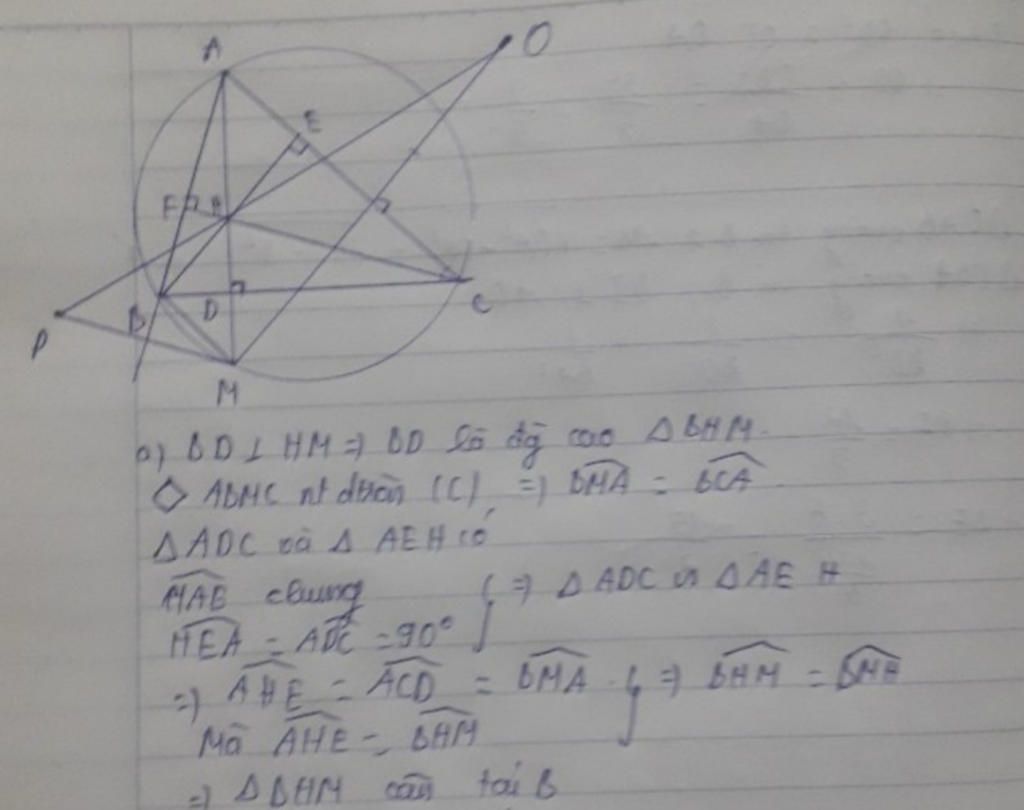 A
O
E
F H
B D
C
P
M
a) BD ⊥ HM => BD là đg cao Δ BHM.
◇ ABMC nt đtròn (C) => \widehat{BMA} = \widehat{BCA}
Δ ADC và Δ AEH có
\widehat{MAE} chung } => Δ ADC ∽ Δ AEH
\widehat{HEA} = \widehat{ADC} = 90°
=> \widehat{AHE} = \widehat{ACD} = \widehat{BMA} } => \widehat{BHM} = \widehat{BMH}
Mà \widehat{AHE} = \widehat{BHM}
=> Δ BHM cân tại B